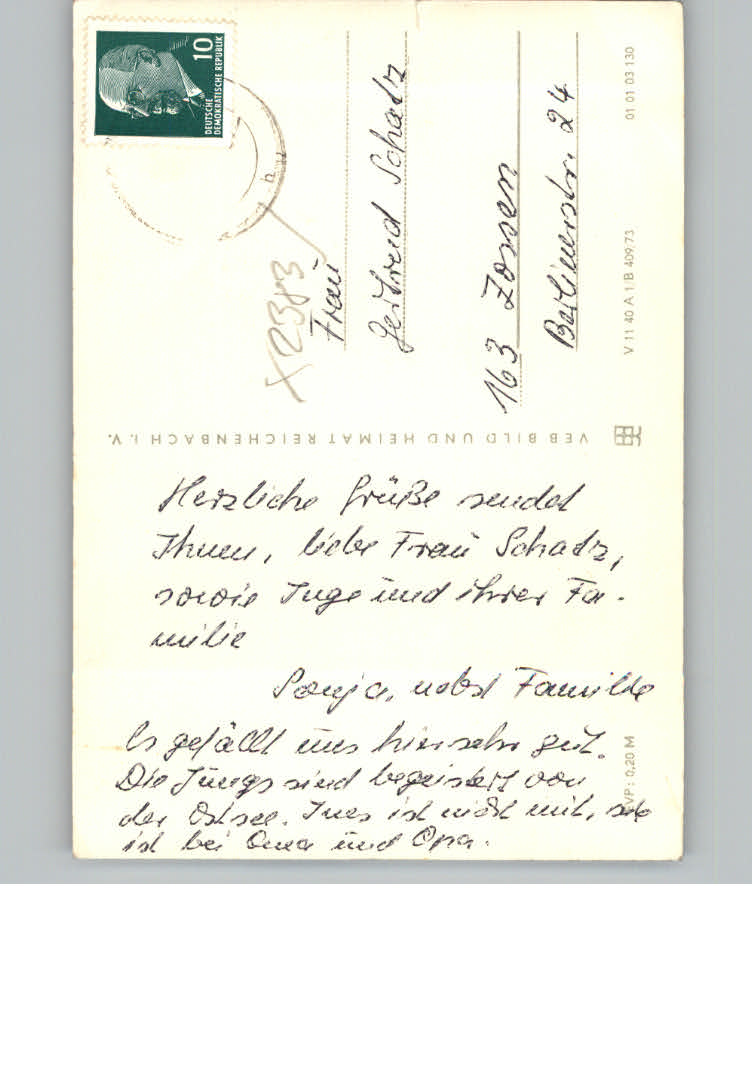 10
DEUTSCHE
DEMOKRATISCHE REPUBLIK
X2383
Frau
Gertrud Schatz
163 Zossen
Berlinerstr. 24
01 01 03 130
V 11 40 A 1/B 409/73
VEB BILD UND HEIMAT REICHENBACH I. V.
Herzliche Grüße sendet
Ihnen, liebe Frau Schatz,
sowie Inge und ihrer Fa-
milie
Sonja, nebst Familie
Es gefällt uns hier sehr gut.
Die Jungs sind begeistert von
der Ostsee. Ines ist nicht mit, sie
ist bei Oma und Opa.
EVP: 0,20 M